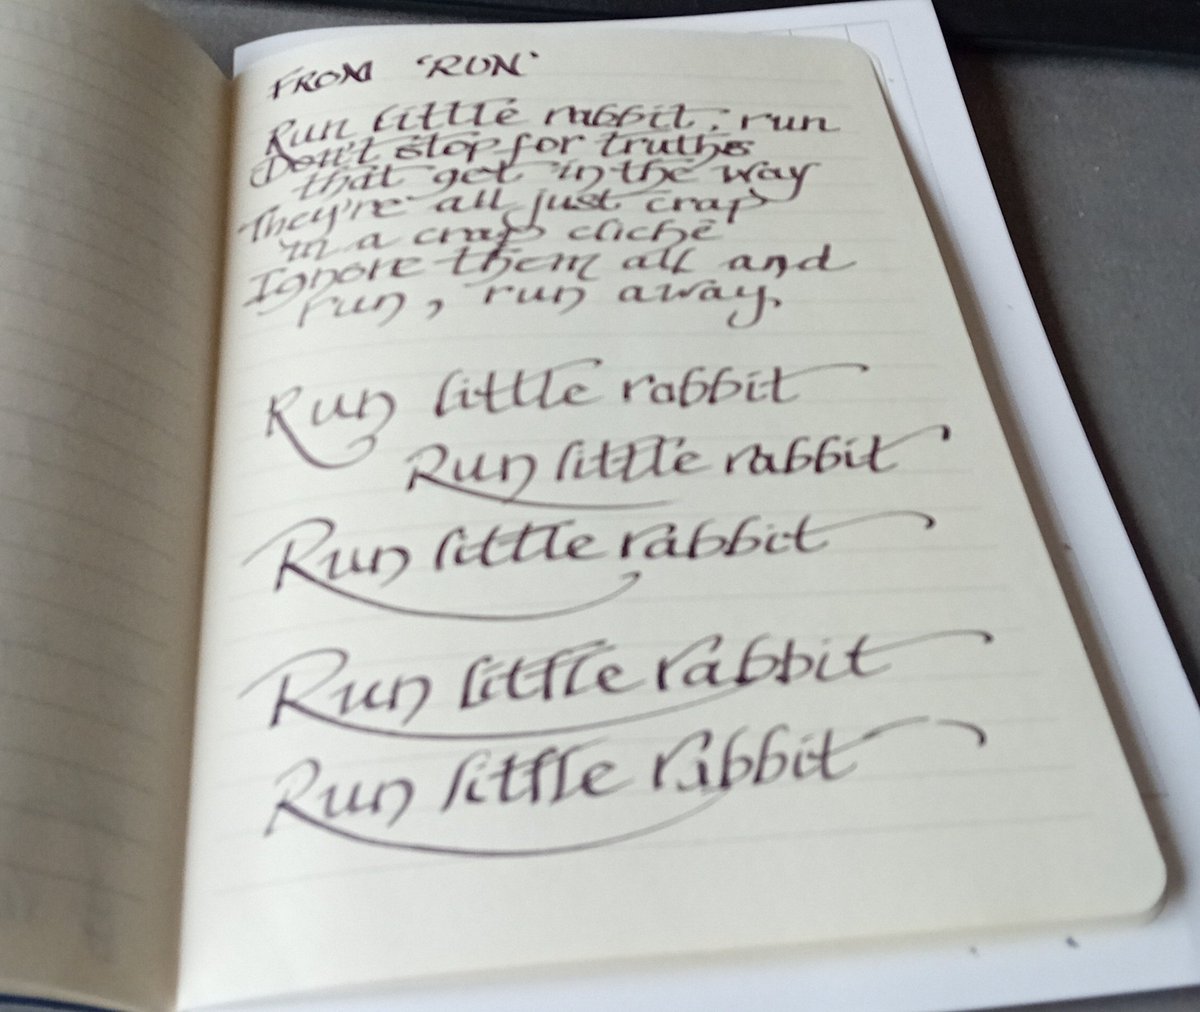 FROM 'RUN'
Run little rabbit, run
Don't stop for truths
that get in the way
They're all just crap
in a crap cliché
Ignore them all and
run, run away.
Run little rabbit
Run little rabbit
Run little rabbit
Run little rabbit
Run little rabbit